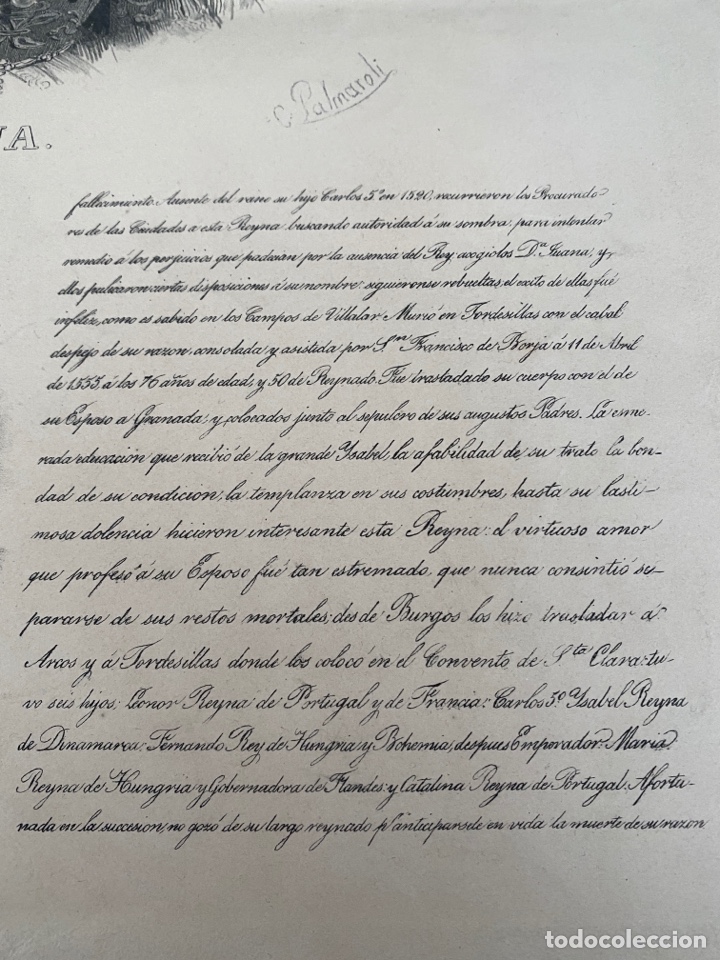 C. Palmaroli
NA.
fallecimiento. Ausente del reino su hijo Carlos 5.º en 1520, recurrieron los Procurado-
res de las Ciudades a esta Reyna buscando autoridad á su sombra, para intentar
remedio á los perjuicios que padecian por la ausencia del Rey: acogiolos D.ª Juana, y
ellos publicaron ciertas disposiciones á su nombre: siguieronse rebueltas, el exito de ellas fué
infeliz, como es sabido en los Campos de Villalar. Murió en Tordesillas con el cabal
despejo de su razon, consolada y asistida por S.n Francisco de Borja á 11 de Abril
de 1555 á los 76 años de edad, y 50 de Reynado. Fue trasladado su cuerpo con el de
su Esposo a Granada, y colocados junto al sepulcro de sus augustos Padres. La esme-
rada educación que recibió de la grande Ysabel, la afabilidad de su trato la bon-
dad de su condicion, la templanza en sus costumbres, hasta su lasti-
mosa dolencia hicieron interesante esta Reyna: el virtuoso amor
que profesó á su Esposo fué tan estremado, que nunca consintió se-
pararse de sus restos mortales; desde Burgos los hizo trasladar á
Arcos y á Tordesillas donde los colocó en el Convento de S.ta Clara: tu-
vo seis hijos; Leonor Reyna de Portugal y de Francia: Carlos 5.º Ysabel Reyna
de Dinamarca: Fernando Rey de Hungria y Bohemia, despues Emperador: Maria
Reyna de Hungria y Gobernadora de Flandes: y Catalina Reyna de Portugal. Afortu-
nada en la succesion, no gozó de su largo reynado p.r anticiparsele en vida la muerte de su razon
todocoleccion